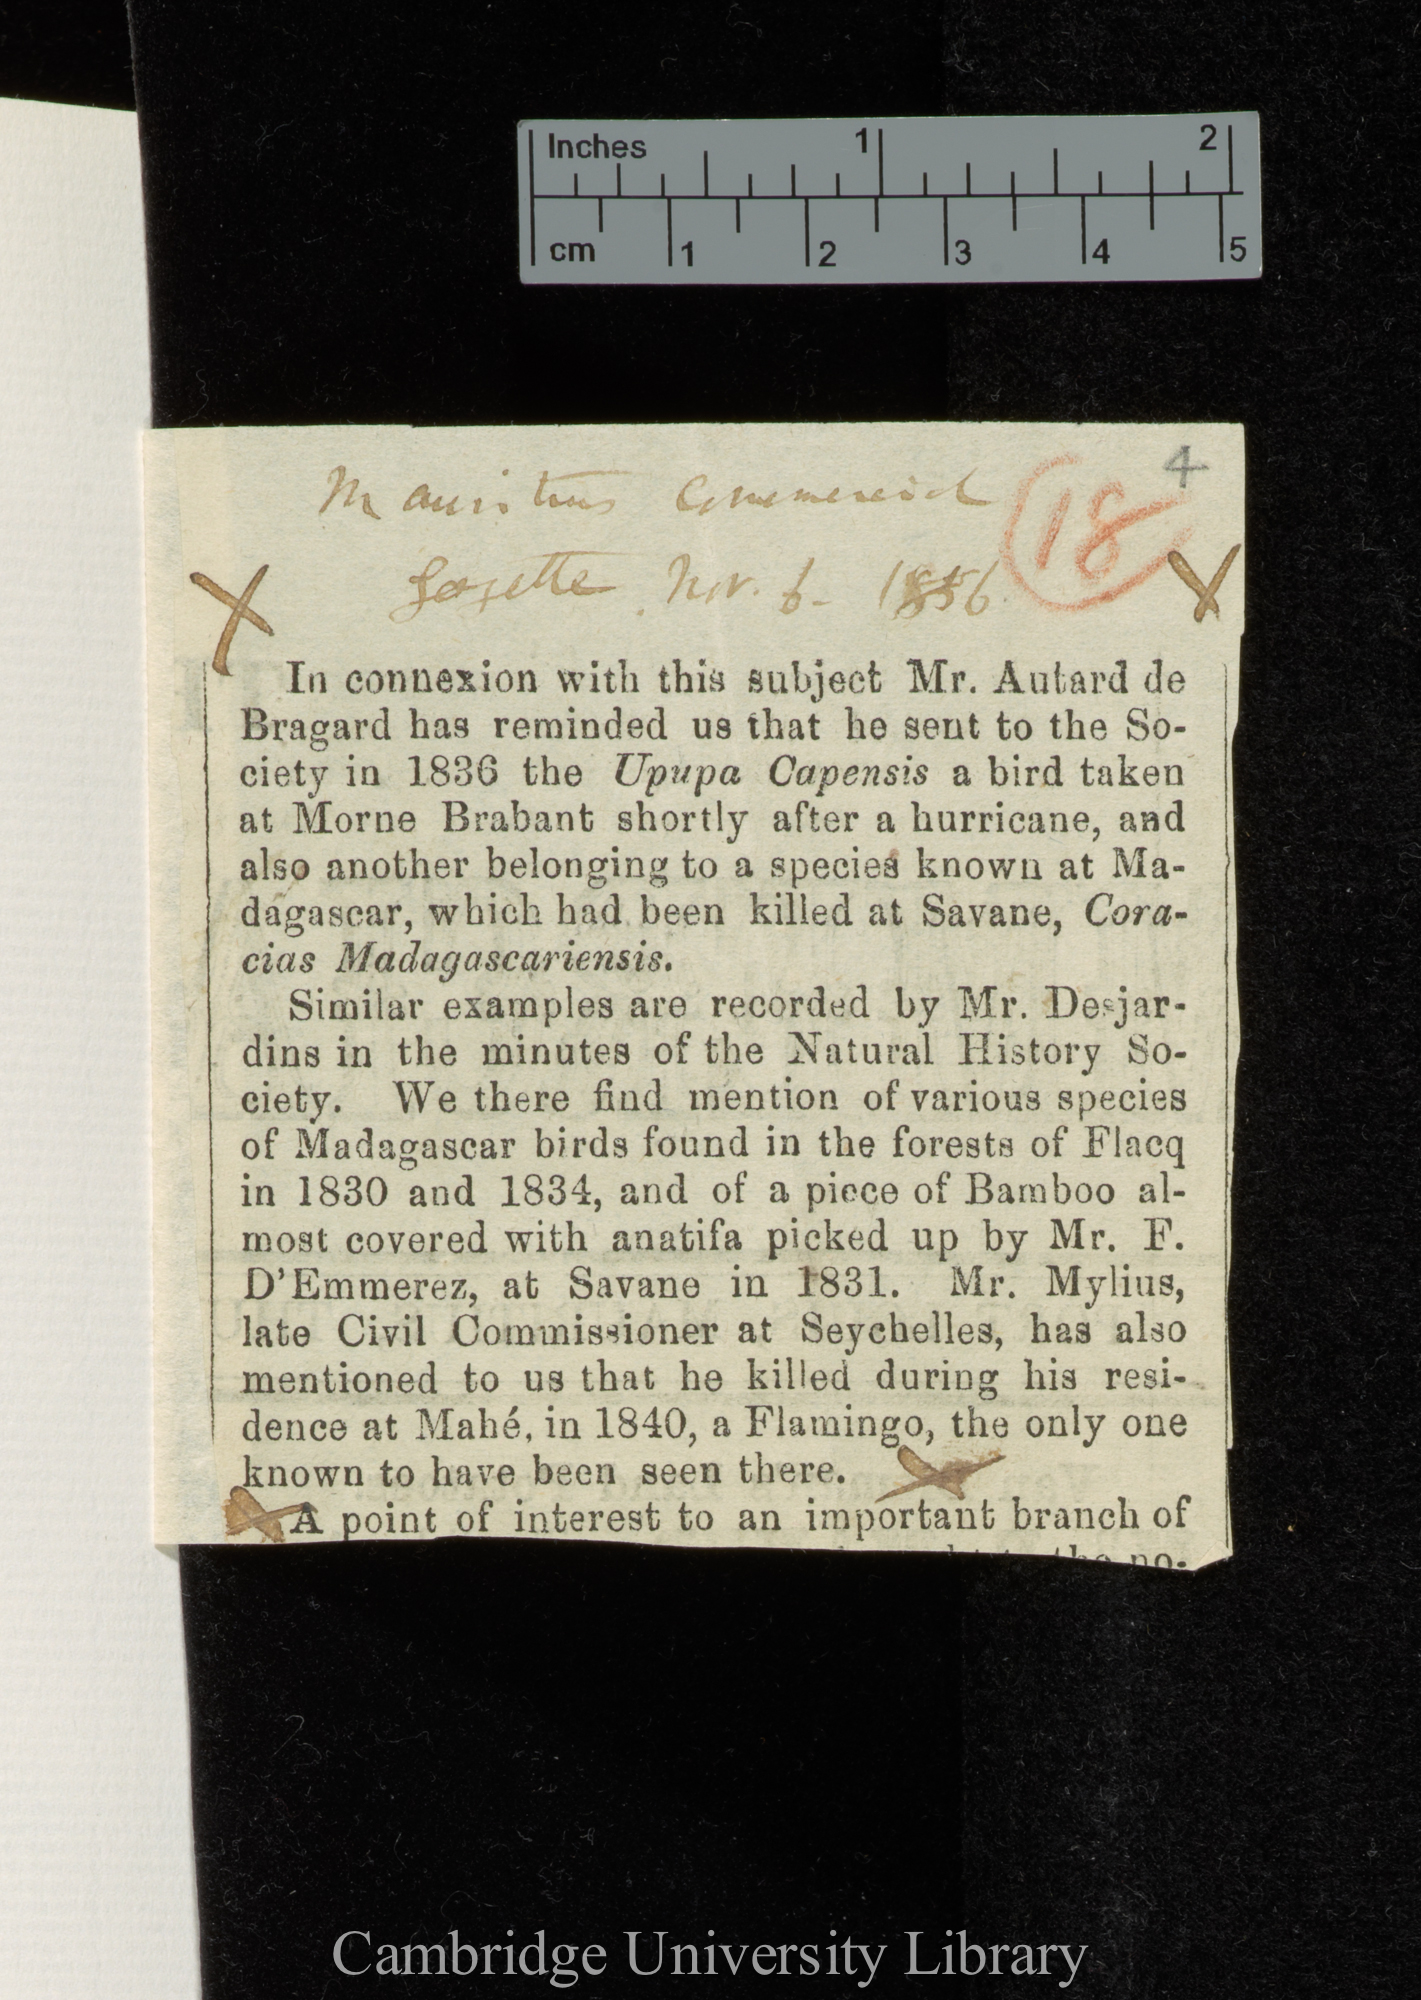 Inches 1 2
cm 1 2 3 4 5
4
Mauritius Commercial
18
Gazette. Nov. 6. 1856.
In connexion with this subject Mr. Autard de
Bragard has reminded us that he sent to the So-
ciety in 1836 the Upupa Capensis a bird taken
at Morne Brabant shortly after a hurricane, and
also another belonging to a species known at Ma-
dagascar, which had been killed at Savane, Cora-
cias Madagascariensis.
Similar examples are recorded by Mr. Desjar-
dins in the minutes of the Natural History So-
ciety. We there find mention of various species
of Madagascar birds found in the forests of Flacq
in 1830 and 1834, and of a piece of Bamboo al-
most covered with anatifa picked up by Mr. F.
D'Emmerez, at Savane in 1831. Mr. Mylius,
late Civil Commissioner at Seychelles, has also
mentioned to us that he killed during his resi-
dence at Mahé, in 1840, a Flamingo, the only one
known to have been seen there.
A point of interest to an important branch of
the no-
Cambridge University Library